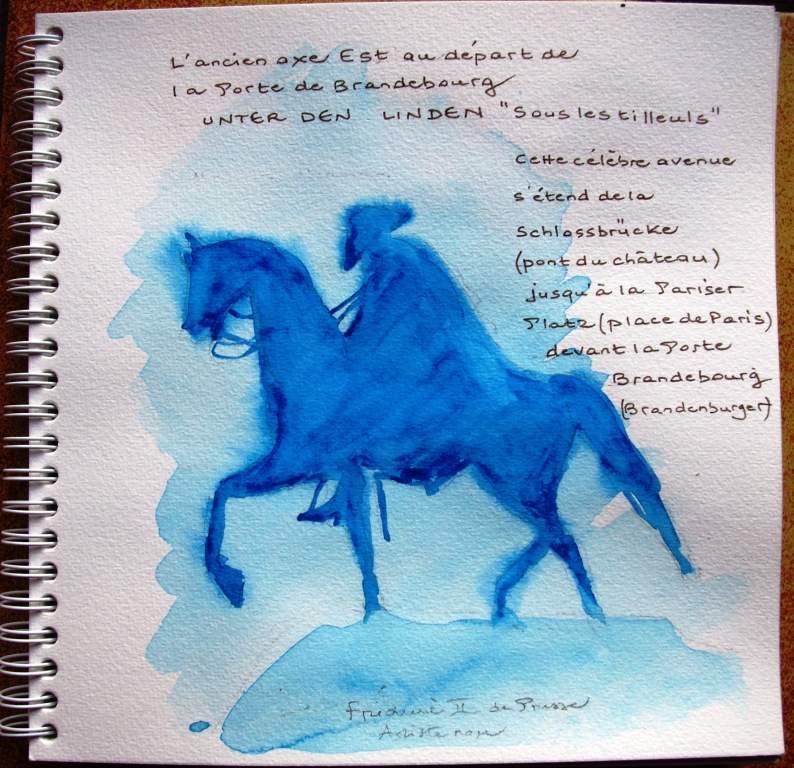 L'ancien axe Est au départ de
la Porte de Brandebourg
UNTER DEN LINDEN "Sous les tilleuls"
Cette célèbre avenue
s'étend de la
Schlossbrücke
(pont du château)
jusqu'à la Pariser
Platz (place de Paris)
devant la Porte
Brandebourg
(Brandenburger)
Frédéric II de Prusse
Artiste